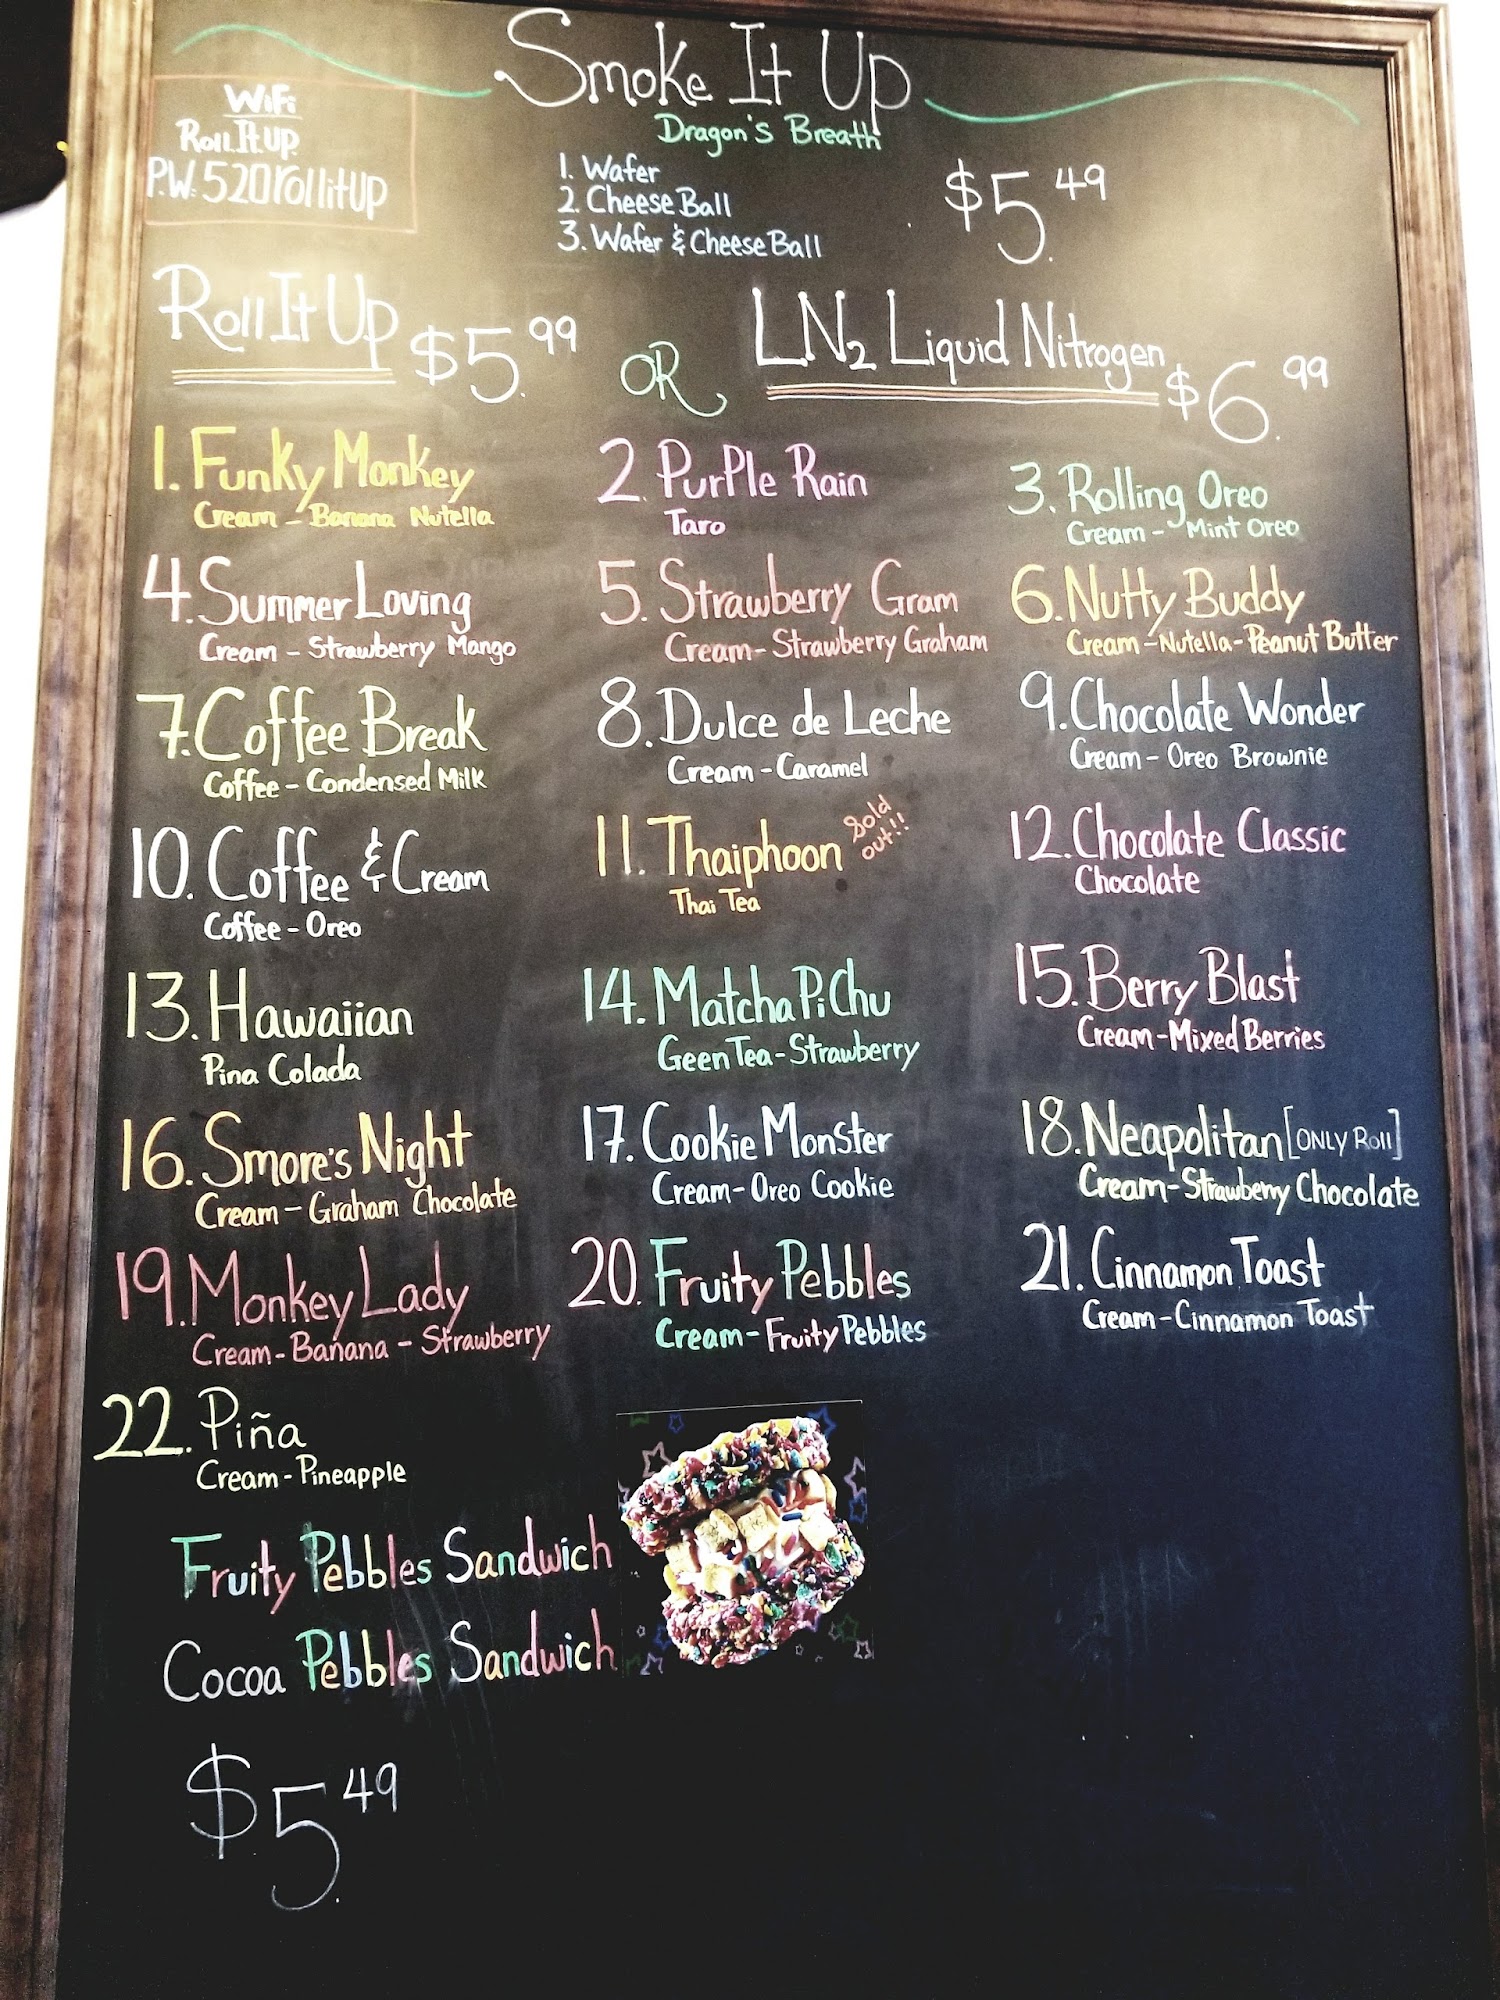 Smoke It Up
Dragon's Breath
WiFi
Roll.It.Up
P.W: 520rollitup
1. Wafer
2. Cheese Ball
3. Wafer & Cheese Ball
$5.49
Roll It Up $5.99
OR
LN2 Liquid Nitrogen $6.99
1. Funky Monkey
Cream - Banana Nutella
2. Purple Rain
Taro
3. Rolling Oreo
Cream - Mint Oreo
4. Summer Loving
Cream - Strawberry Mango
5. Strawberry Gram
Cream - Strawberry Graham
6. Nutty Buddy
Cream - Nutella - Peanut Butter
7. Coffee Break
Coffee - Condensed Milk
8. Dulce de Leche
Cream - Caramel
9. Chocolate Wonder
Cream - Oreo Brownie
10. Coffee & Cream
Coffee - Oreo
11. Thaiphoon Sold out!!
Thai Tea
12. Chocolate Classic
Chocolate
13. Hawaiian
Pina Colada
14. Matcha Pi Chu
Geen Tea - Strawberry
15. Berry Blast
Cream - Mixed Berries
16. Smore's Night
Cream - Graham Chocolate
17. Cookie Monster
Cream - Oreo Cookie
18. Neapolitan [ONLY Roll]
Cream - Strawberry Chocolate
19. Monkey Lady
Cream - Banana - Strawberry
20. Fruity Pebbles
Cream - Fruity Pebbles
21. Cinnamon Toast
Cream - Cinnamon Toast
22. Piña
Cream - Pineapple
Fruity Pebbles Sandwich
Cocoa Pebbles Sandwich
$5.49